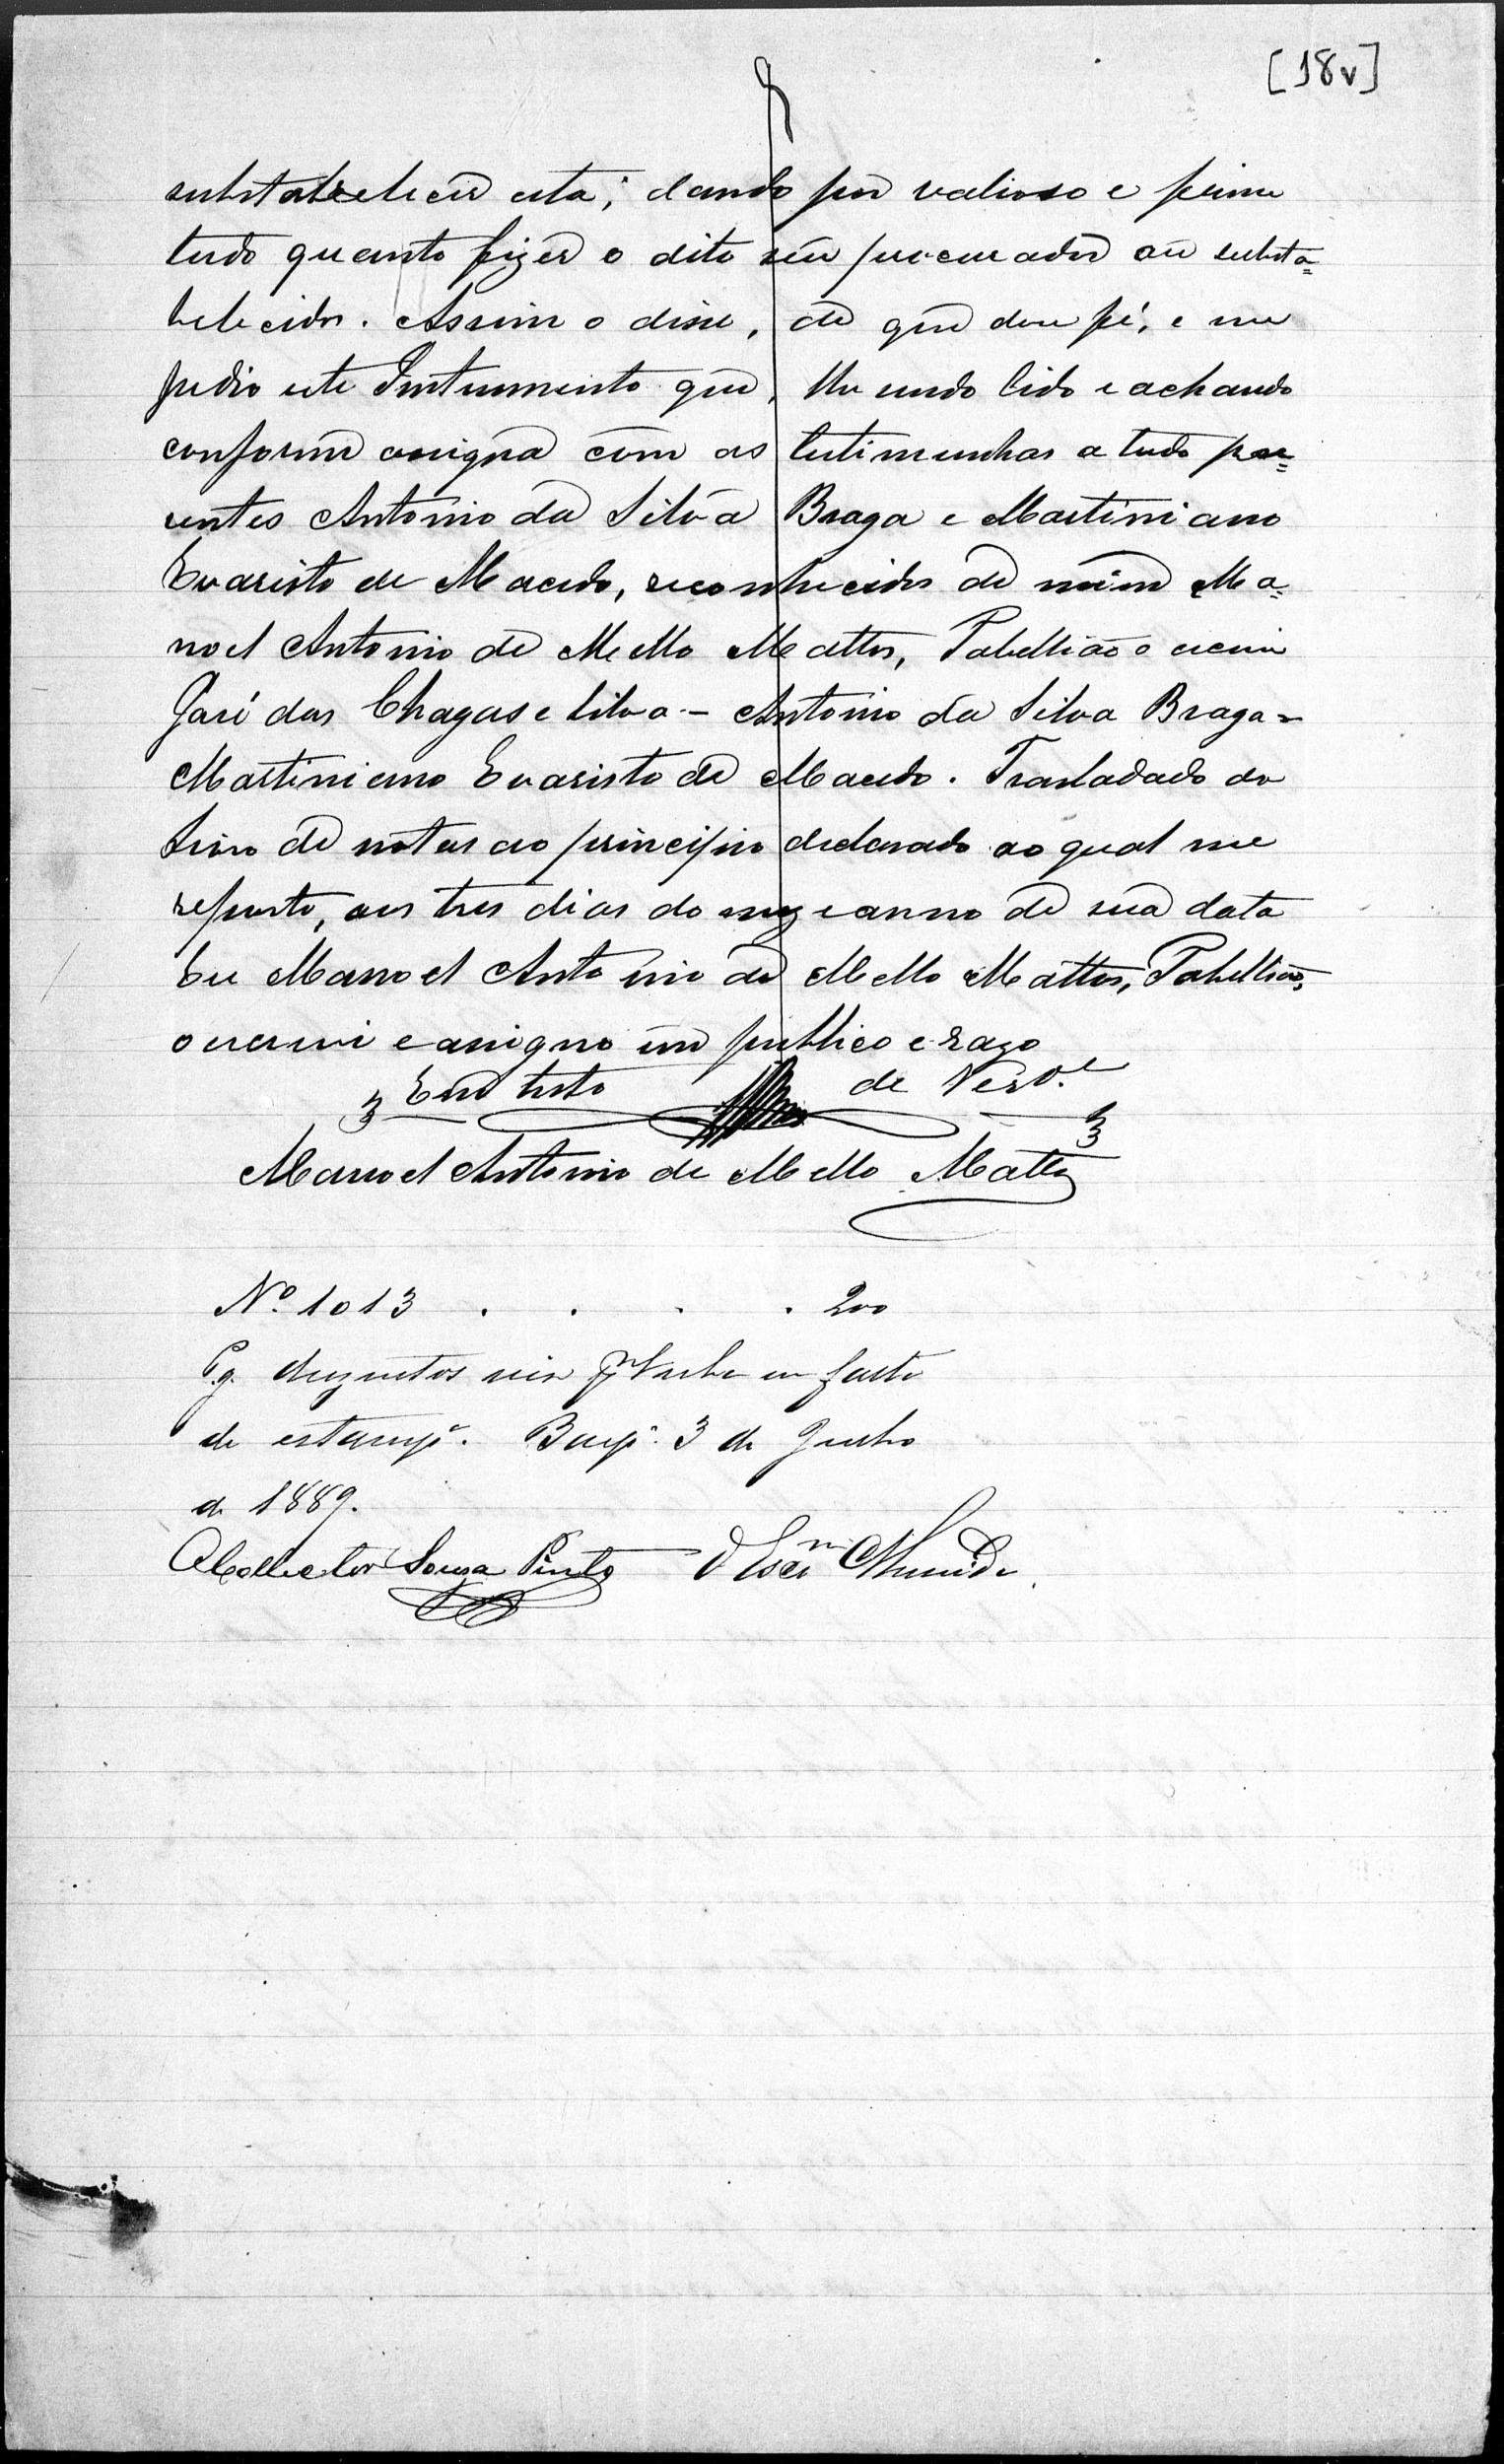 [18v]
substabelecer esta; dando por valioso e firme
tudo quanto fizer o dito seu procurador ou substa=
belecidos. Assim o disse, de que dou fé, e me
pedio este Instrumento que, lhe sendo lido e achando
conforme assigna com as testimunhas a tudo pre=
sentes Antonio da Silva Braga e Martiniano
Evaristo de Macedo, reconhecidos de mim Ma=
noel Antonio de Mello Mattos, Tabellião o escrevi
José das Chagas e Silva - Antonio da Silva Braga -
Martiniano Evaristo de Macedo. Trasladado do
Livro de notas ao principio declarado ao qual me
reporto, aos tres dias do mez e anno de sua data
Eu Manoel Antonio de Mello Mattos, Tabellião,
o escrevi e assigno em publico e razo
Em testo de Verd.e
Manoel Antonio de Mello Mattos
Nº 1013 . . . . 200
Pg. duzentos reis verba em falta
de estampª. 3 de Junho
de 1889.
O Collector Souza Pinto O Escm Almeida